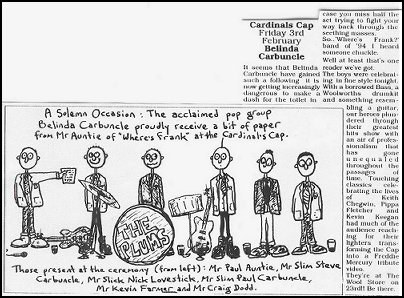 Cardinals Cap
Friday 3rd
February
Belinda
Carbuncle
It seems that Belinda
Carbuncle have gained
such a following it is
now getting increasingly
dangerous to make a
dash for the toilet in
case you miss half the
act trying to fight your
way back through the
seething masses.
So..'Where's Frank?'
band of '94 I heard
someone chuckle.
Well at least that's one
reader we've got.
The boys were celebrat-
ing in fine style tonight.
With a borrowed Bass, a
Woolworths drumkit
and something resem-
bling a guitar,
our heroes plun-
dered through
their greatest
hits show with
an air of profes-
sionalism that
has gone
unequaled
throughout the
passages of
time. Touching
classics cele-
brating the lives
of Keith
Chegwin, Pippa
Fletcher and
Kevin Keegan
had much of the
audience reach-
ing for their
lighters trans-
forming the Cap
into a Freddie
Mercury tribute
wake.
They're at The
Wool Store on
23rd!! Be there.
A Solemn Occasion: The acclaimed pop group
Belinda Carbuncle proudly receive a bit of paper
from Mr Auntie of "Where's Frank" at the Cardinal's Cap.
THE
Those present at the ceremony (from left): Mr Paul Auntie, Mr Slim Steve
Carbuncle, Mr Slick Nick Lovestick, Mr Slim Paul Carbuncle,
Mr Kevin Farmer and Mr Craig Dodd.